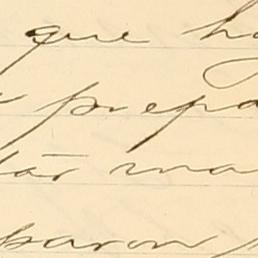 que ha
prepa
tár ma
paron